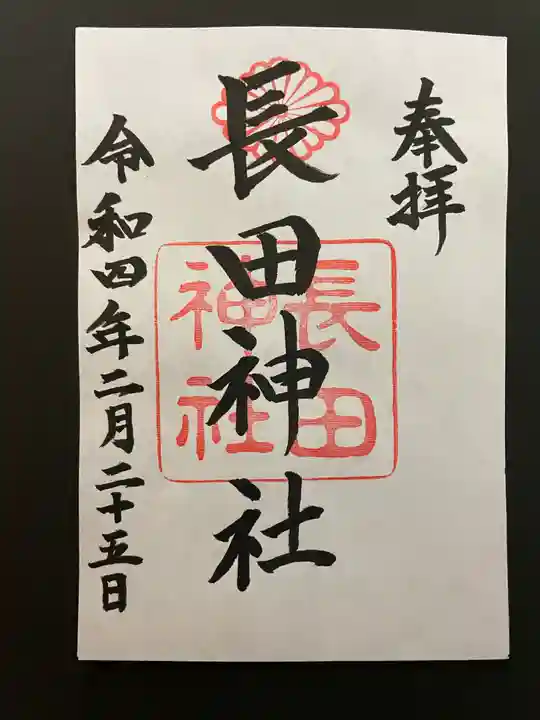 奉拝
長田神社
長田神社
令和四年二月二十五日